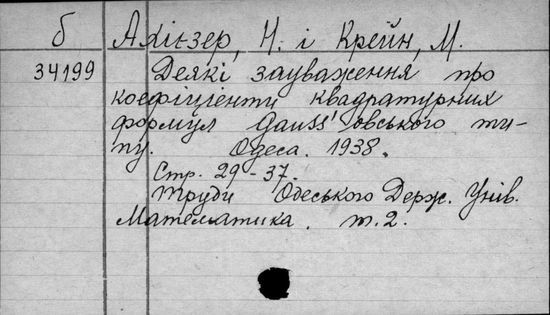 б Ахіезер, Н. і Крейн, М.
34199 Деякі зауваження про
коефіцієнти квадратурних
формул Gauss'овського ти-
пу. Одеса. 1938.
Стр. 29-37.
Труди Одеського Держ. Унів.
Математика. т. 2.